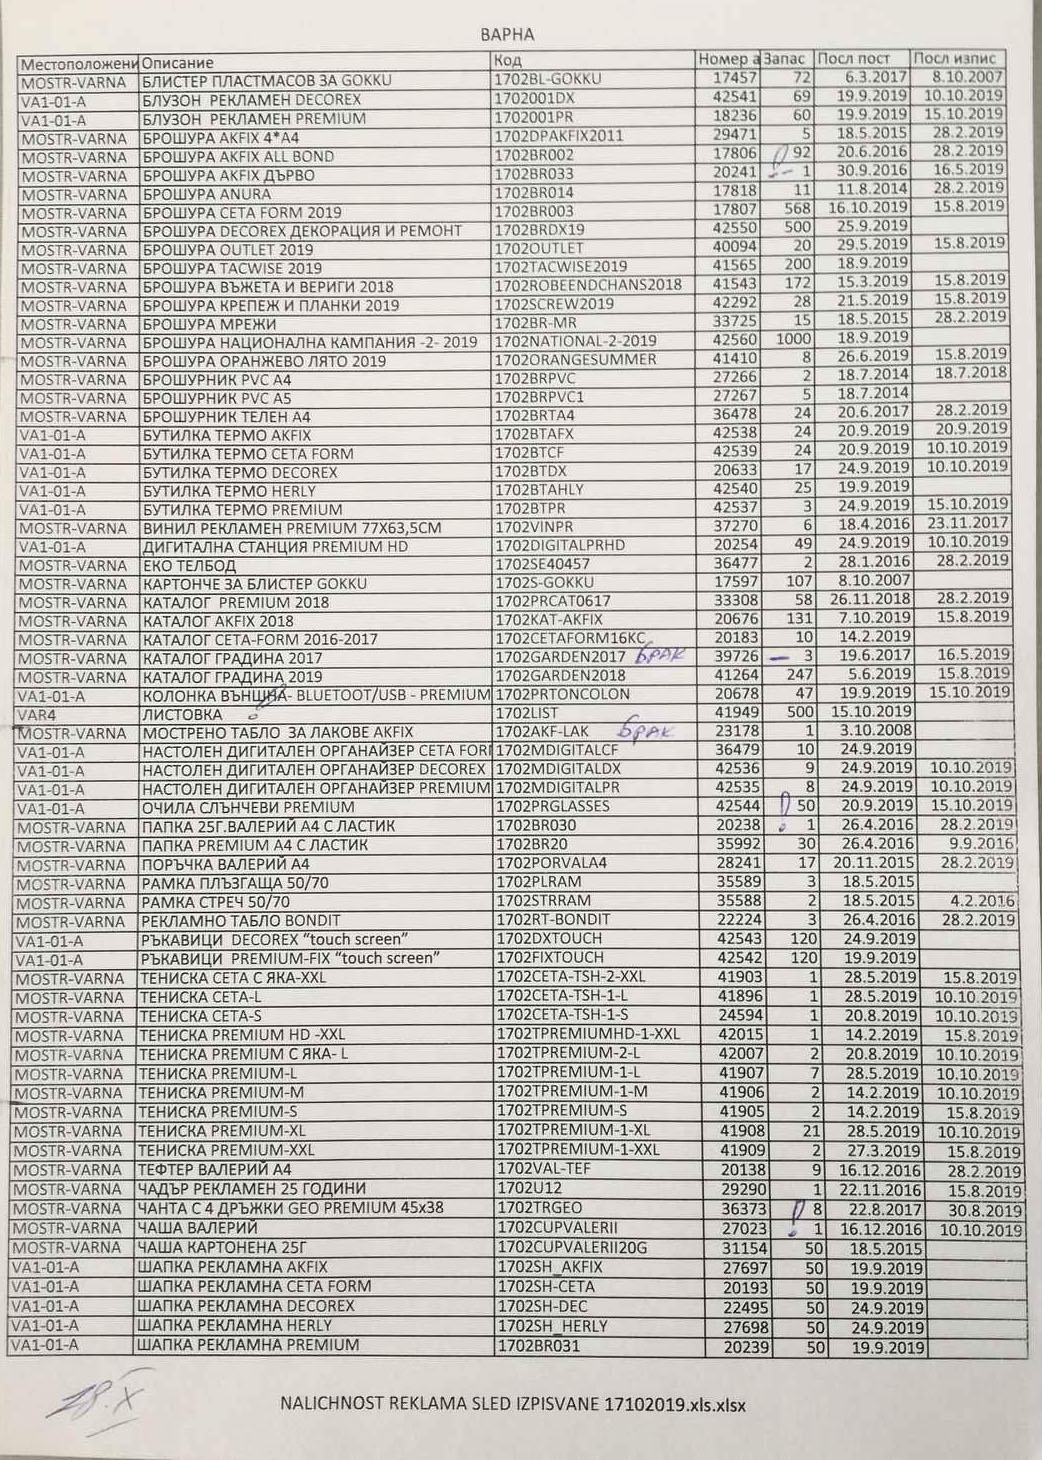 ВАРНА
Местоположени Описание Код Номер а Запас Посл пост Посл изпис
MOSTR-VARNA БЛИСТЕР ПЛАСТМАСОВ ЗА GOKKU 1702BL-GOKKU 17457 72 6.3.2017 8.10.2007
VA1-01-A БЛУЗОН РЕКЛАМЕН DECOREX 1702001DX 42541 69 19.9.2019 10.10.2019
VA1-01-A БЛУЗОН РЕКЛАМЕН PREMIUM 1702001PR 18236 60 19.9.2019 15.10.2019
MOSTR-VARNA БРОШУРА AKFIX 4*A4 1702DPAKFIX2011 29471 5 18.5.2015 28.2.2019
MOSTR-VARNA БРОШУРА AKFIX ALL BOND 1702BR002 17806 92 20.6.2016 28.2.2019
MOSTR-VARNA БРОШУРА AKFIX ДЪРВО 1702BR033 20241 1 30.9.2016 16.5.2019
MOSTR-VARNA БРОШУРА ANURA 1702BR014 17818 11 11.8.2014 28.2.2019
MOSTR-VARNA БРОШУРА CETA FORM 2019 1702BR003 17807 568 16.10.2019 15.8.2019
MOSTR-VARNA БРОШУРА DECOREX ДЕКОРАЦИЯ И РЕМОНТ 1702BRDX19 42550 500 25.9.2019
MOSTR-VARNA БРОШУРА OUTLET 2019 1702OUTLET 40094 20 29.5.2019 15.8.2019
MOSTR-VARNA БРОШУРА TACWISE 2019 1702TACWISE2019 41565 200 18.9.2019
MOSTR-VARNA БРОШУРА ВЪЖЕТА И ВЕРИГИ 2018 1702ROBEENDCHANS2018 41543 172 15.3.2019 15.8.2019
MOSTR-VARNA БРОШУРА КРЕПЕЖ И ПЛАНКИ 2019 1702SCREW2019 42292 28 21.5.2019 15.8.2019
MOSTR-VARNA БРОШУРА МРЕЖИ 1702BR-MR 33725 15 18.5.2015 28.2.2019
MOSTR-VARNA БРОШУРА НАЦИОНАЛНА КАМПАНИЯ -2- 2019 1702NATIONAL-2-2019 42560 1000 18.9.2019
MOSTR-VARNA БРОШУРА ОРАНЖЕВО ЛЯТО 2019 1702ORANGESUMMER 41410 8 26.6.2019 15.8.2019
MOSTR-VARNA БРОШУРНИК PVC A4 1702BRPVC 27266 2 18.7.2014 18.7.2018
MOSTR-VARNA БРОШУРНИК PVC A5 1702BRPVC1 27267 5 18.7.2014
MOSTR-VARNA БРОШУРНИК ТЕЛЕН A4 1702BRTA4 36478 24 20.6.2017 28.2.2019
VA1-01-A БУТИЛКА ТЕРМО AKFIX 1702BTAFX 42538 24 20.9.2019 20.9.2019
VA1-01-A БУТИЛКА ТЕРМО CETA FORM 1702BTCF 42539 24 20.9.2019 10.10.2019
VA1-01-A БУТИЛКА ТЕРМО DECOREX 1702BTDX 20633 17 24.9.2019 10.10.2019
VA1-01-A БУТИЛКА ТЕРМО HERLY 1702BTAHLY 42540 25 19.9.2019
VA1-01-A БУТИЛКА ТЕРМО PREMIUM 1702BTPR 42537 3 24.9.2019 15.10.2019
MOSTR-VARNA ВИНИЛ РЕКЛАМЕН PREMIUM 77X63,5СМ 1702VINPR 37270 6 18.4.2016 23.11.2017
VA1-01-A ДИГИТАЛНА СТАНЦИЯ PREMIUM HD 1702DIGITALPRHD 20254 49 24.9.2019 10.10.2019
MOSTR-VARNA ЕКО ТЕЛБОД 1702SE40457 36477 2 28.1.2016 28.2.2019
MOSTR-VARNA КАРТОНЧЕ ЗА БЛИСТЕР GOKKU 1702S-GOKKU 17597 107 8.10.2007
MOSTR-VARNA КАТАЛОГ PREMIUM 2018 1702PRCAT0617 33308 58 26.11.2018 28.2.2019
MOSTR-VARNA КАТАЛОГ AKFIX 2018 1702KAT-AKFIX 20676 131 7.10.2019 15.8.2019
MOSTR-VARNA КАТАЛОГ CETA-FORM 2016-2017 1702CETAFORM16KC 20183 10 14.2.2019
MOSTR-VARNA КАТАЛОГ ГРАДИНА 2017 1702GARDEN2017 БРАК 39726 – 3 19.6.2017 16.5.2019
MOSTR-VARNA КАТАЛОГ ГРАДИНА 2019 1702GARDEN2018 41264 247 5.6.2019 15.8.2019
VA1-01-A КОЛОНКА ВЪНШНА- BLUETOOT/USB - PREMIUM 1702PRTONCOLON 20678 47 19.9.2019 15.10.2019
VAR4 ЛИСТОВКА 1702LIST 41949 500 15.10.2019
MOSTR-VARNA МОСТРЕНО ТАБЛО ЗА ЛАКОВЕ AKFIX 1702AKF-LAK БРАК 23178 1 3.10.2008
VA1-01-A НАСТОЛЕН ДИГИТАЛЕН ОРГАНАЙЗЕР CETA FORI 1702MDIGITALCF 36479 10 24.9.2019
VA1-01-A НАСТОЛЕН ДИГИТАЛЕН ОРГАНАЙЗЕР DECOREX 1702MDIGITALDX 42536 9 24.9.2019 10.10.2019
VA1-01-A НАСТОЛЕН ДИГИТАЛЕН ОРГАНАЙЗЕР PREMIUM 1702MDIGITALPR 42535 8 24.9.2019 10.10.2019
VA1-01-A ОЧИЛА СЛЪНЧЕВИ PREMIUM 1702PRGLASSES 42544 50 20.9.2019 15.10.2019
MOSTR-VARNA ПАПКА 25Г.ВАЛЕРИЙ А4 С ЛАСТИК 1702BR030 20238 1 26.4.2016 28.2.2019
MOSTR-VARNA ПАПКА PREMIUM А4 С ЛАСТИК 1702BR20 35992 30 26.4.2016 9.9.2016
MOSTR-VARNA ПОРЪЧКА ВАЛЕРИЙ А4 1702PORVALA4 28241 17 20.11.2015 28.2.2019
MOSTR-VARNA РАМКА ПЛЪЗГАЩА 50/70 1702PLRAM 35589 3 18.5.2015
MOSTR-VARNA РАМКА СТРЕЧ 50/70 1702STRRAM 35588 2 18.5.2015 4.2.2016
MOSTR-VARNA РЕКЛАМНО ТАБЛО BONDIT 1702RT-BONDIT 22224 3 26.4.2016 28.2.2019
VA1-01-A РЪКАВИЦИ DECOREX "touch screen" 1702DXTOUCH 42543 120 24.9.2019
VA1-01-A РЪКАВИЦИ PREMIUM-FIX "touch screen" 1702FIXTOUCH 42542 120 19.9.2019
MOSTR-VARNA ТЕНИСКА CETA С ЯКА-XXL 1702CETA-TSH-2-XXL 41903 1 28.5.2019 15.8.2019
MOSTR-VARNA ТЕНИСКА CETA-L 1702CETA-TSH-1-L 41896 1 28.5.2019 10.10.2019
MOSTR-VARNA ТЕНИСКА CETA-S 1702CETA-TSH-1-S 24594 1 20.8.2019 10.10.2019
MOSTR-VARNA ТЕНИСКА PREMIUM HD -XXL 1702TPREMIUMHD-1-XXL 42015 1 14.2.2019 15.8.2019
MOSTR-VARNA ТЕНИСКА PREMIUM С ЯКА- L 1702TPREMIUM-2-L 42007 2 20.8.2019 10.10.2019
MOSTR-VARNA ТЕНИСКА PREMIUM-L 1702TPREMIUM-1-L 41907 7 28.5.2019 10.10.2019
MOSTR-VARNA ТЕНИСКА PREMIUM-M 1702TPREMIUM-1-M 41906 2 14.2.2019 10.10.2019
MOSTR-VARNA ТЕНИСКА PREMIUM-S 1702TPREMIUM-S 41905 2 14.2.2019 15.8.2019
MOSTR-VARNA ТЕНИСКА PREMIUM-XL 1702TPREMIUM-1-XL 41908 21 28.5.2019 10.10.2019
MOSTR-VARNA ТЕНИСКА PREMIUM-XXL 1702TPREMIUM-1-XXL 41909 2 27.3.2019 15.8.2019
MOSTR-VARNA ТЕФТЕР ВАЛЕРИЙ А4 1702VAL-TEF 20138 9 16.12.2016 28.2.2019
MOSTR-VARNA ЧАДЪР РЕКЛАМЕН 25 ГОДИНИ 1702U12 29290 1 22.11.2016 15.8.2019
MOSTR-VARNA ЧАНТА С 4 ДРЪЖКИ GEO PREMIUM 45x38 1702TRGEO 36373 8 22.8.2017 30.8.2019
MOSTR-VARNA ЧАША ВАЛЕРИЙ 1702CUPVALERII 27023 1 16.12.2016 10.10.2019
MOSTR-VARNA ЧАША КАРТОНЕНА 25Г 1702CUPVALERII20G 31154 50 18.5.2015
VA1-01-A ШАПКА РЕКЛАМНА AKFIX 1702SH_AKFIX 27697 50 19.9.2019
VA1-01-A ШАПКА РЕКЛАМНА CETA FORM 1702SH-CETA 20193 50 19.9.2019
VA1-01-A ШАПКА РЕКЛАМНА DECOREX 1702SH-DEC 22495 50 24.9.2019
VA1-01-A ШАПКА РЕКЛАМНА HERLY 1702SH_HERLY 27698 50 24.9.2019
VA1-01-A ШАПКА РЕКЛАМНА PREMIUM 1702BR031 20239 50 19.9.2019
NALICHNOST REKLAMA SLED IZPISVANE 17102019.xls.xlsx